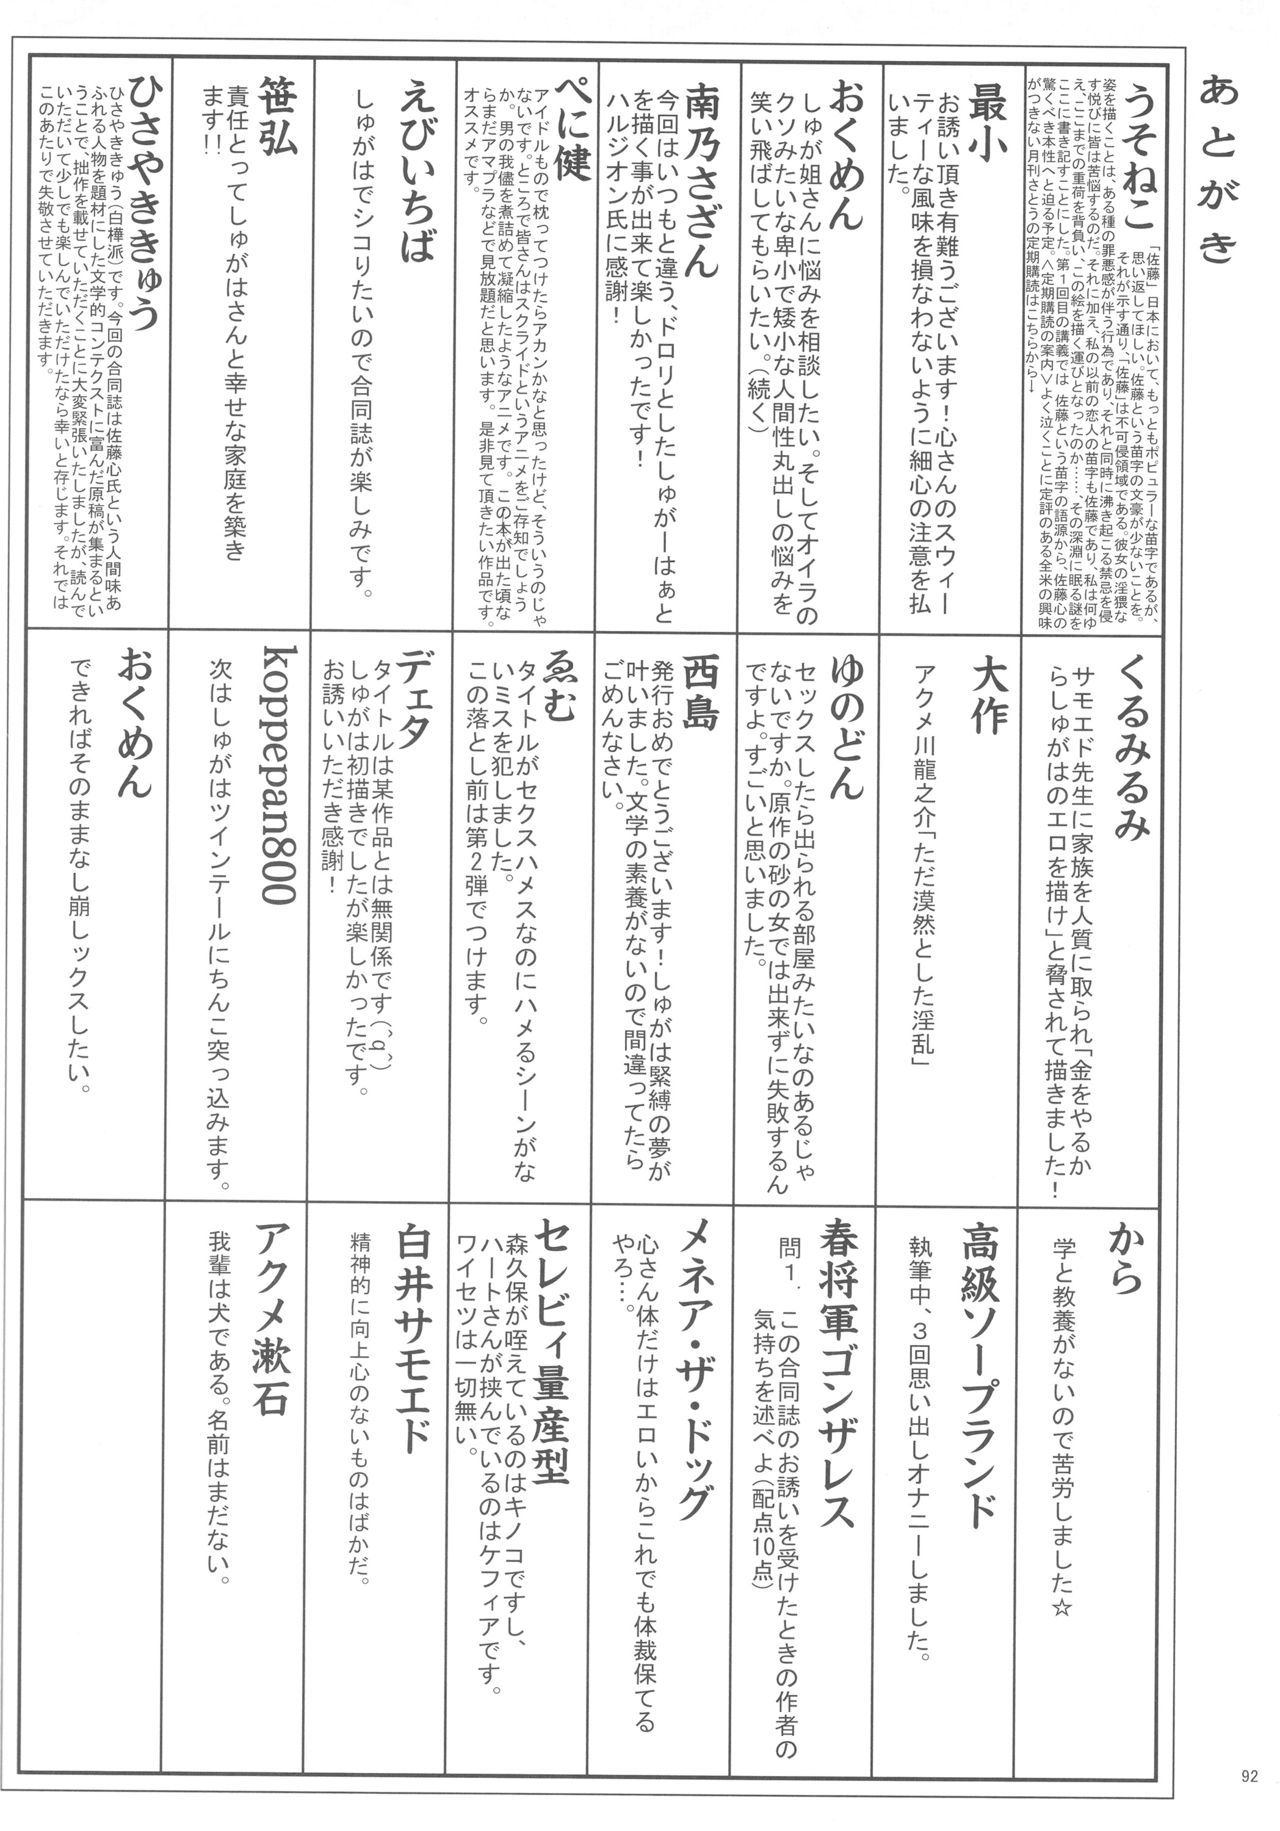 あとがき
うそねこ
「佐藤」日本において、もっともポピュラーな苗字であるが、
思い返してほしい。佐藤という苗字の文豪が少ないことを。
それが示す通り、「佐藤」は不可侵領域である。彼女の淫猥な
姿を描くことは、ある種の罪悪感が伴う行為であり、それと同時に沸き起こる禁忌を侵
す悦びに皆は苦悩するのだ。それに加え、私の以前の恋人の苗字も佐藤であり、私は何ゆ
え、ここまでの重荷を背負い、この絵を描く運びとなったのか……、その深淵に眠る謎を
ここに書き記すことにした。第1回目の講義では 佐藤という苗字の語源から、佐藤心の
驚くべき本性へと迫る予定。<定期購読の案内>よく泣くことに定評のある全米の興味
がつきない月刊さとうの定期購読はこちらから↓
最小
お誘い頂き有難うございます!心さんのスウィー
ティーな風味を損なわないように細心の注意を払
いました。
おくめん
しゅが姐さんに悩みを相談したい。そしてオイラの
クソみたいな卑小で矮小な人間性丸出しの悩みを
笑い飛ばしてもらいたい。(続く)
南乃さざん
今回はいつもと違う、ドロリとしたしゅがーはぁと
を描く事が出来て楽しかったです!
ハルジオン氏に感謝!
ぺに健
アイドルもので枕ってつけたらアカンかなと思ったけど、そういうのじゃ
ないです。ところで皆さんはスクライドというアニメをご存知でしょう
か。男の我儘を煮詰めて凝縮したようなアニメです。この本が出た頃な
らまだアマプラなどで見放題だと思います。是非見て頂きたい作品です。
オススメです。
えびいちば
しゅがはでシコりたいので合同誌が楽しみです。
笹弘
責任とってしゅがはさんと幸せな家庭を築き
ます!!
ひさやききゅう
ひさやききゅう(白樺派)です。今回の合同誌は佐藤心氏という人間味あ
ふれる人物を題材にした文学的コンテクストに富んだ原稿が集まるとい
うことで、拙作を載せていただくことに大変緊張いたしましたが、読んで
いただいて少しでも楽しんでいただけたなら幸いと存じます。それでは
このあたりで失敬させていただきます。
くるみるみ
サモエド先生に家族を人質に取られ「金をやるか
らしゅがはのエロを描け」と脅されて描きました!
大作
アクメ川龍之介「ただ漠然とした淫乱」
ゆのどん
セックスしたら出られる部屋みたいなのあるじゃ
ないですか。原作の砂の女では出来ずに失敗するん
ですよ。すごいと思いました。
西島
発行おめでとうございます!しゅがは緊縛の夢が
叶いました。文学の素養がないので間違ってたら
ごめんなさい。
ゑむ
タイトルがセクスハメスなのにハメるシーンがな
いミスを犯しました。
この落とし前は第2弾でつけます。
デェタ
タイトルは某作品とは無関係です(˘q˘)
しゅがは初描きでしたが楽しかったです。
お誘いいただき感謝!
koppepan800
次はしゅがはツインテールにちんこ突っ込みます。
おくめん
できればそのままなし崩しックスしたい。
から
学と教養がないので苦労しました☆
高級ソープランド
執筆中、3回思い出しオナニーしました。
春将軍ゴンザレス
問1. この合同誌のお誘いを受けたときの作者の
気持ちを述べよ(配点10点)
メネア・ザ・ドッグ
心さん体だけはエロいからこれでも体裁保てる
やろ…。
セレビィ量産型
森久保が咥えているのはキノコですし、
ハートさんが挟んでいるのはケフィアです。
ワイセツは一切無い。
白井サモエド
精神的に向上心のないものはばかだ。
アクメ漱石
我輩は犬である。名前はまだない。
92